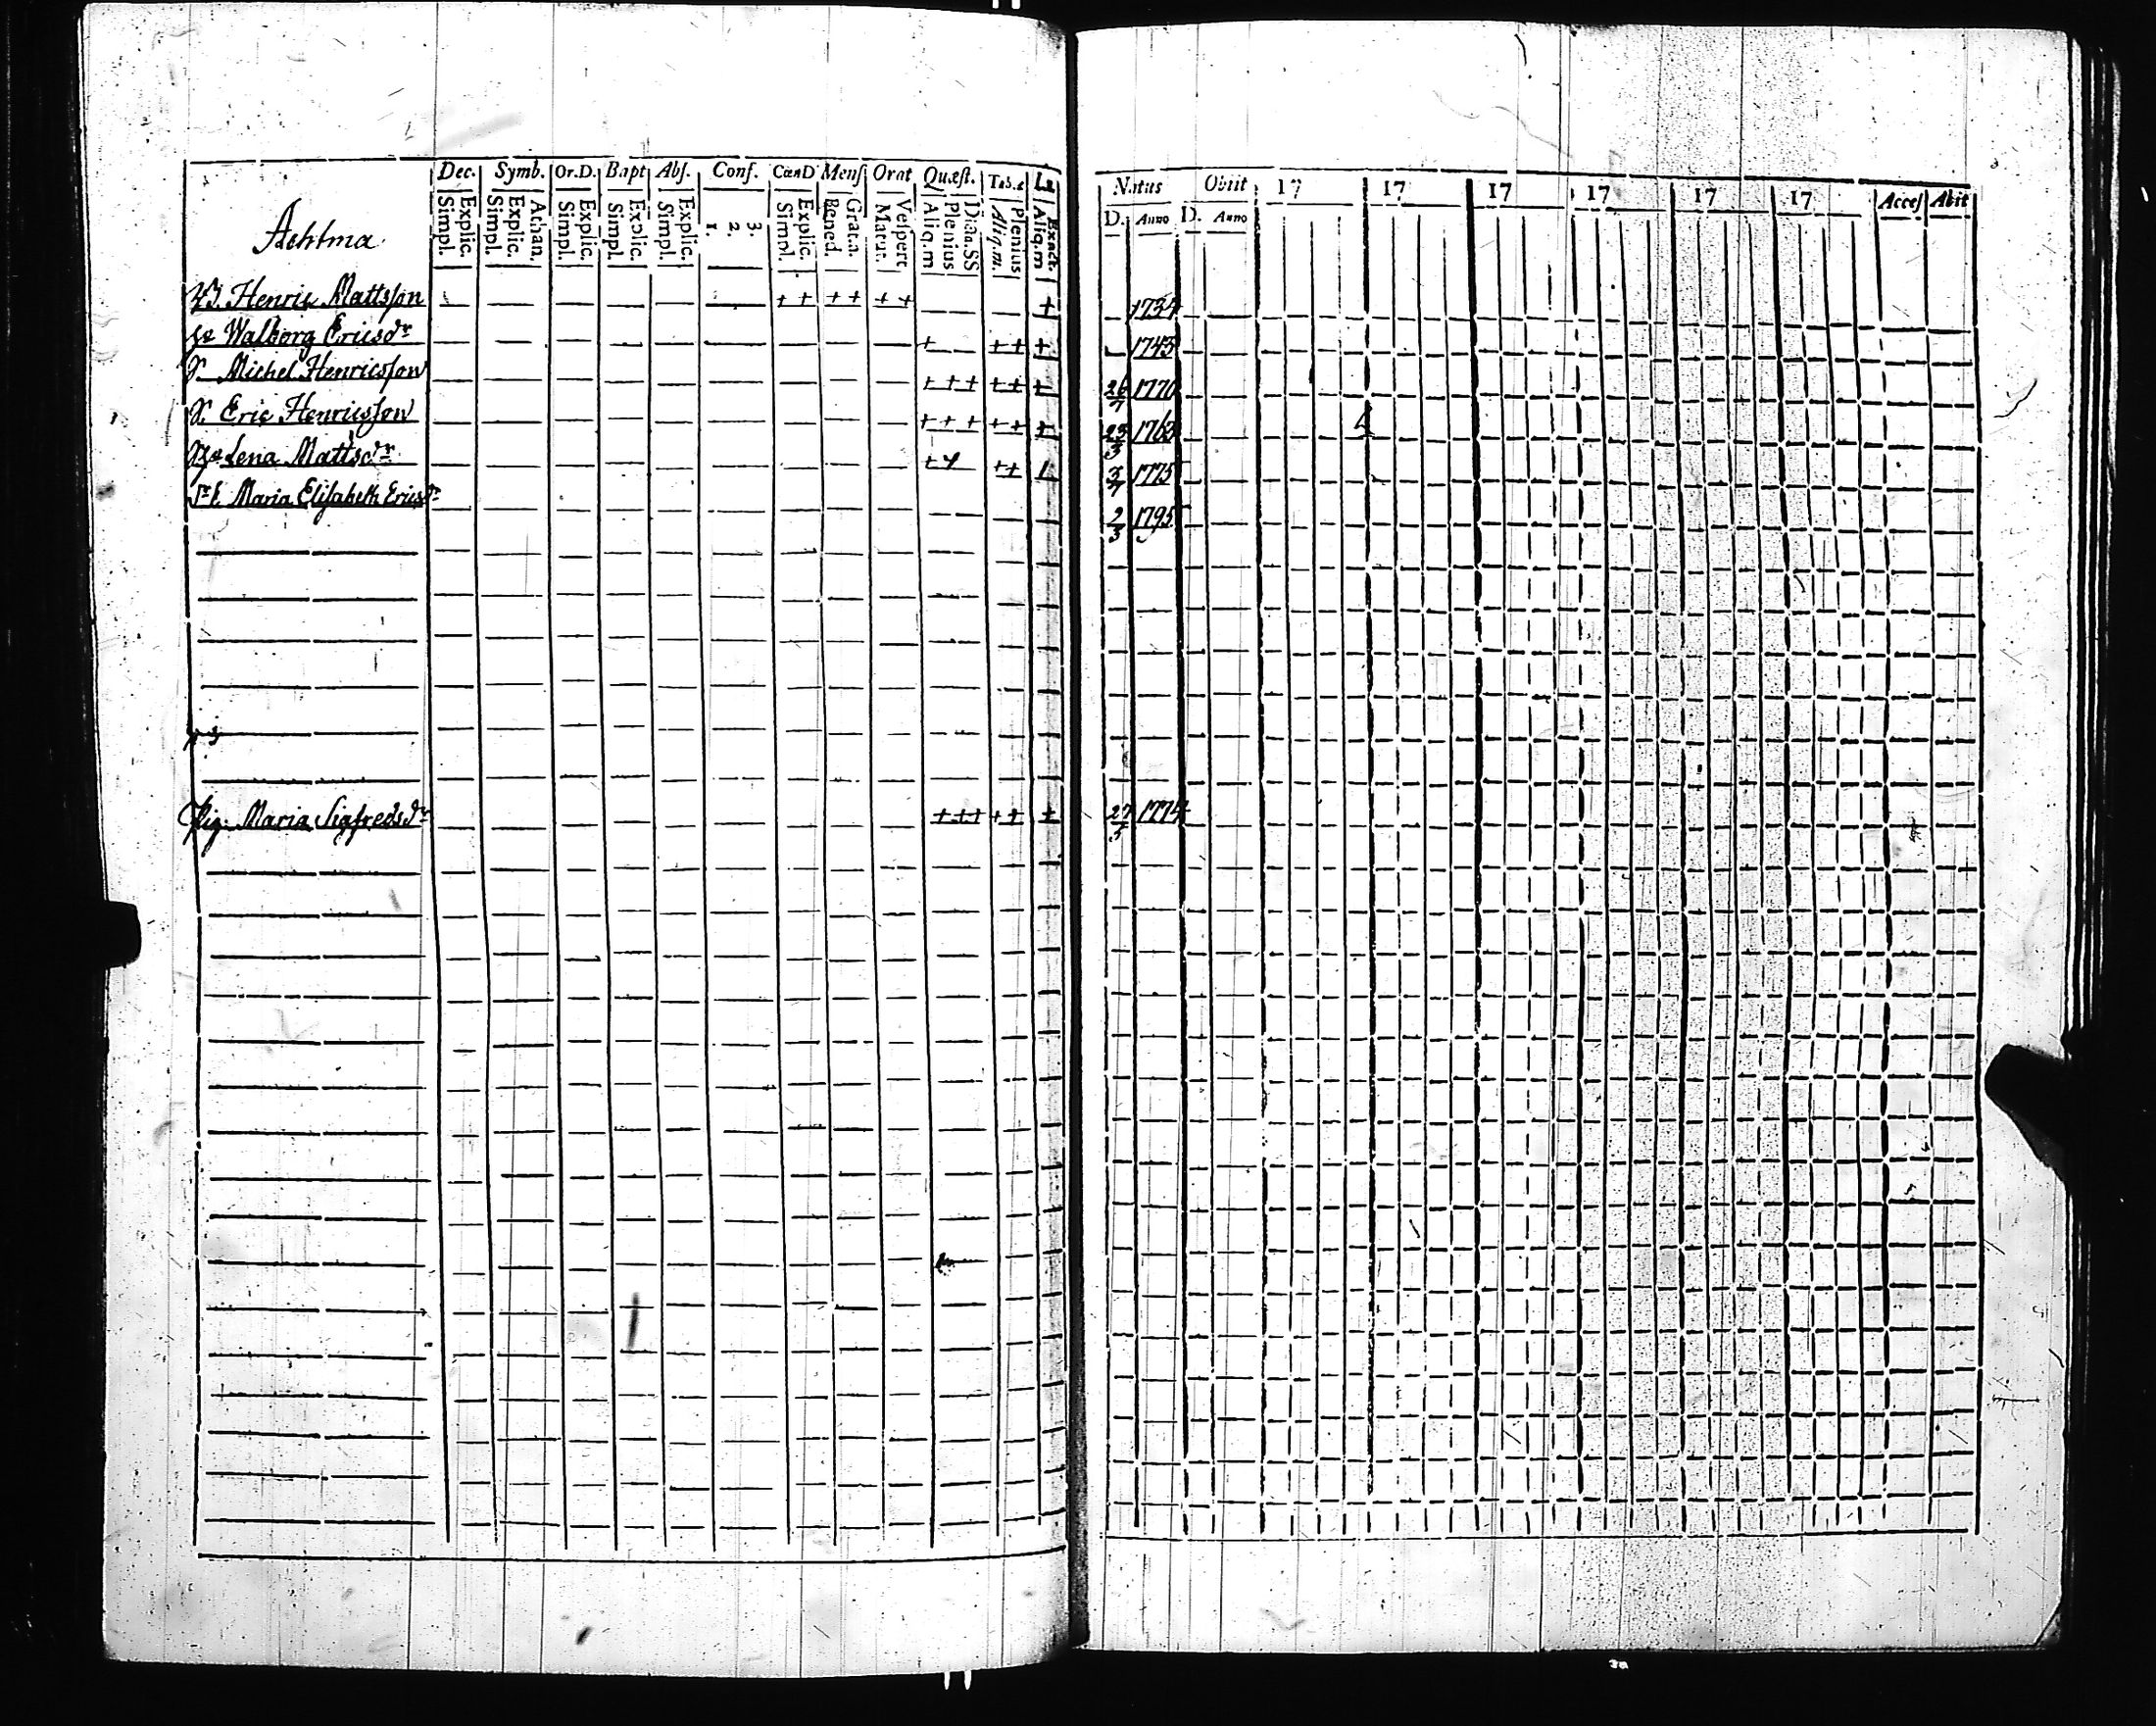 Dec. Symb. Or.D. Bapt Abs. Conf. CœnD Mens Orat Quæst. Tab.œ
Explic. Simpl. Athan. Explic. Simpl. Explic. Simpl. Explic. Simpl. Explic. Simpl. 1. 2. 3. Explic. Simpl. Grat.a. Bened. Vespert Matut. Dicta.SS Plenius Aliq.m Plenius Aliq.m. Exact. Aliq.m
Achtma
Henric Mattsson + + + + + + +
Walborg Ericsdr + + + +
S. Michel Henricsson + + + + + +
S. Eric Henricsson + + + + + +
Lena Mattsdr + + + +
Maria Elisabeth Ericsdr
Pig. Maria Sigfredsdr + + + + + +
Natus Obiit 17 17 17 17 17 17 Acces Abit
D. Anno D. Anno
1734
1743
26/7 1770
23/3 1763
3/7 1775
2/3 1795
27/5 1774